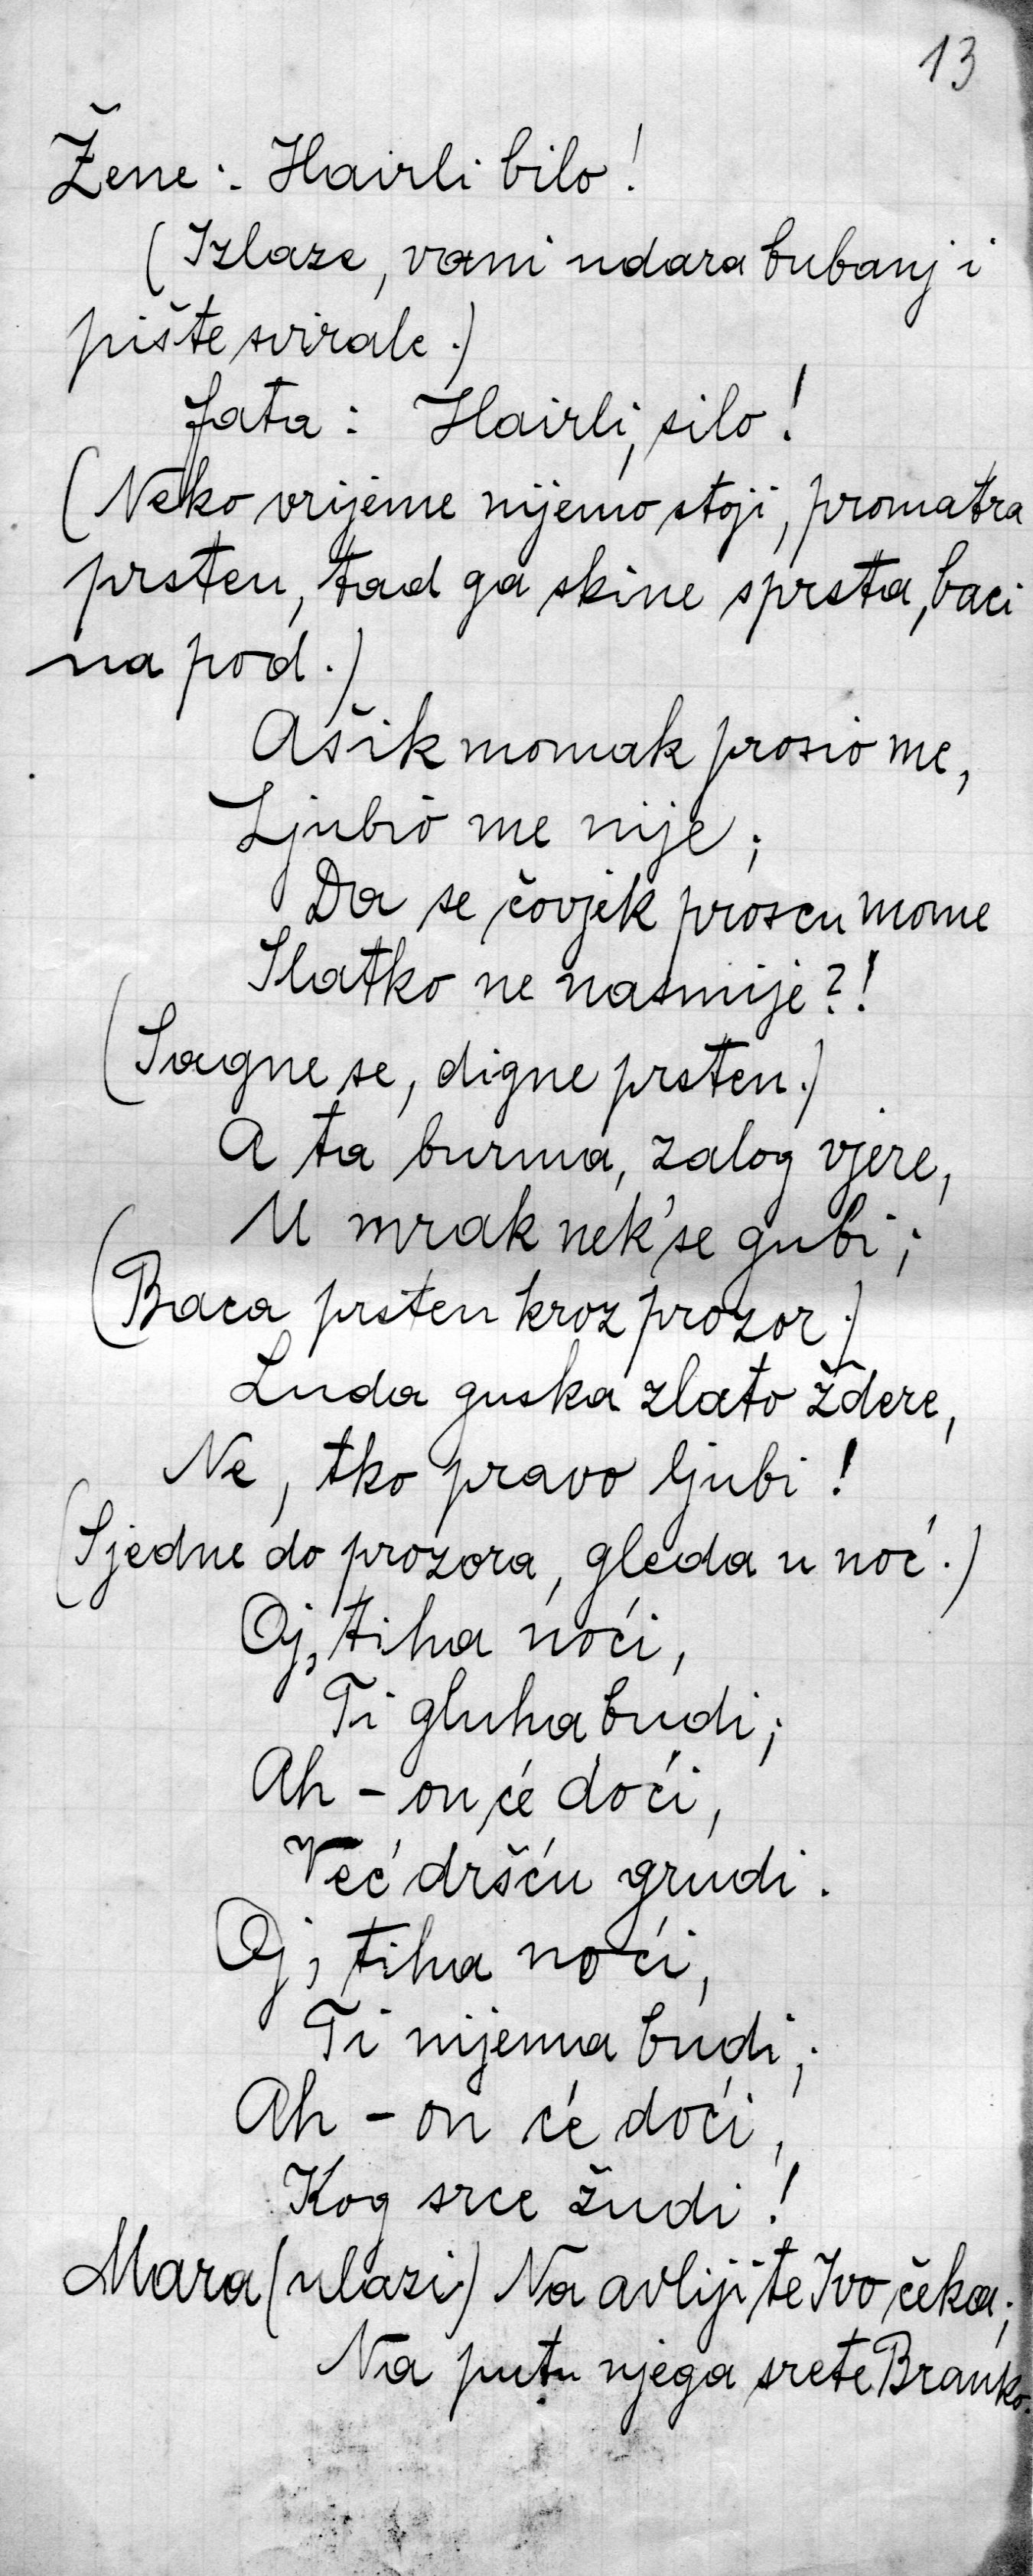 13
Žene: Hairli bilo!
(Izlaze, vani udara bubanj i
pište svirale.)
Fata: Hairli, silo!
(Neko vrijeme nijemo stoji, promatra
prsten, tad ga skine s prsta, baci
na pod.)
Ašik momak prosio me,
Ljubio me nije;
Da se čovjek proscu mome
Slatko ne nasmije?!
(Sagne se, digne prsten.)
A ta burma, zalog vjere,
U mrak nek' se gubi;
(Baca prsten kroz prozor.)
Luda guska zlato ždere,
Ne, tko pravo ljubi!
(Sjedne do prozora, gleda u noć.)
Oj, tiha noći,
Ti gluha budi;
Ah - on će doći,
Već dršću grudi.
Oj, tiha noći,
Ti nijema budi;
Ah - on će doći,
Kog srce žudi!
Mara (ulazi) Na avliji te Ivo čeka;
Na putu njega srete Branko.